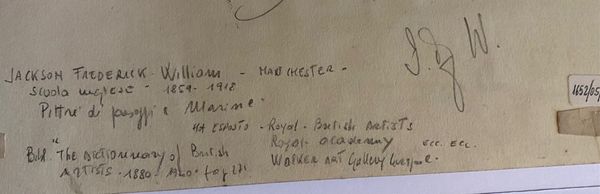 JACKSON FREDERICK - William - MANCHESTER -
Scuola inglese - 1859 - 1918
Pittore di paesaggi e Marine
HA ESPOSTO - Royal - British Artists
Royal academy ecc. ecc.
WALKER ART Gallery Liverpool -
Bibl. "The Dictionary of British
ARTISTS - 1880 - 1940 - pag 271
W.
1652/05/